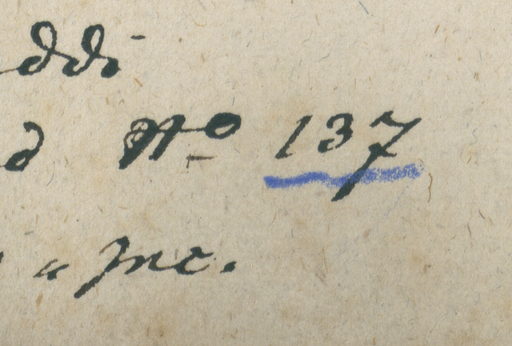 ddi
d No 137
" Inc.